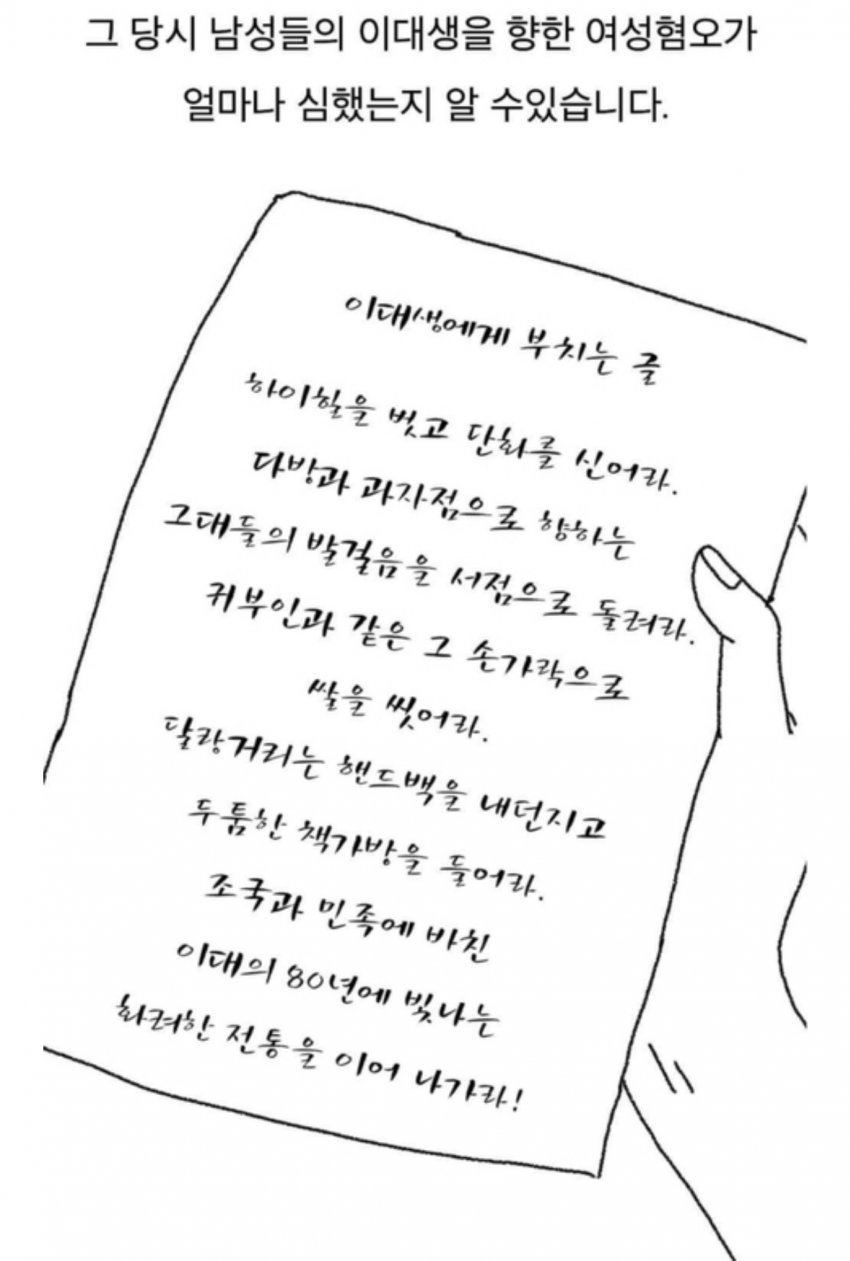 그 당시 남성들의 이대생을 향한 여성혐오가
얼마나 심했는지 알 수있습니다.
이대생에게 부치는 글
하이힐을 벗고 단화를 신어라.
다방과 과자점으로 향하는
그대들의 발걸음을 서점으로 돌려라.
귀부인과 같은 그 손가락으로
쌀을 씻어라.
달랑거리는 핸드백을 내던지고
두툼한 책가방을 들어라.
조국과 민족에 바친
이대의 80년에 빛나는
화려한 전통을 이어 나가라!